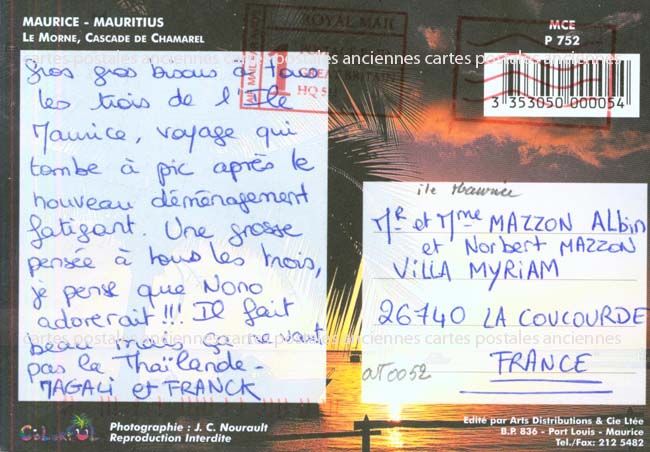 MAURICE - MAURITIUS
LE MORNE, CASCADE DE CHAMAREL
MCE
P 752
AIR MAIL
ROYAL MAIL
GREAT BRITAIN
HQ 5
3 353050 000054
cartes postales anciennes cartes postales anciennes cartes postales anciennes
Gros gros bisous à tous
les trois de l'Ile
Maurice, voyage qui
tombe à pic après le
nouveau déménagement
fatigant. Une grosse
pensée à tous les trois,
je pense que Nono
adorerait !!! Il fait
beau mais ça ne vaut
pas la Thaïlande -
MAGALI et FRANCK
ile Maurice
Mr et Mme MAZZON Albin
et Norbert MAZZON
VILLA MYRIAM
26740 LA COUCOURDE
FRANCE
cartes postales anciennes cartes postales anciennes cartes postales anciennes
COLORFUL
Photographie : J. C. Nourault
Reproduction Interdite
Edité par Arts Distributions & Cie Ltée
B.P. 836 - Port Louis - Maurice
Tel./Fax: 212 5482